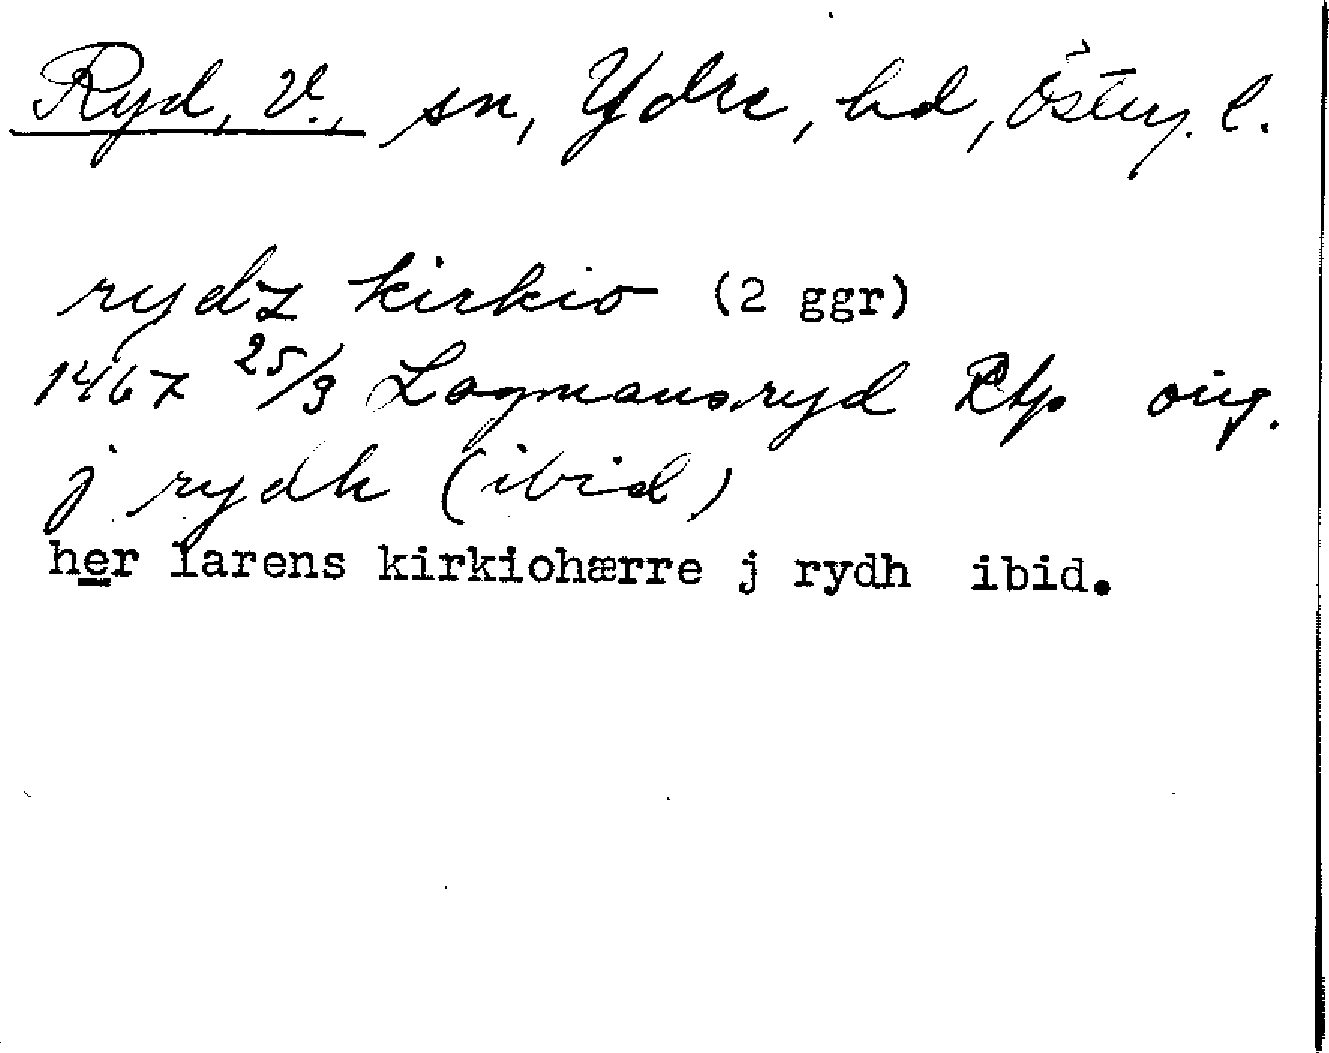 Ryd, V., sn, Ydre, hd, Österg. l.
rydz kirkio (2 ggr)
1467 25/3 Lagmansryd Rtp orig.
j rydh (ibid)
her larens kirkiohærre j rydh ibid.